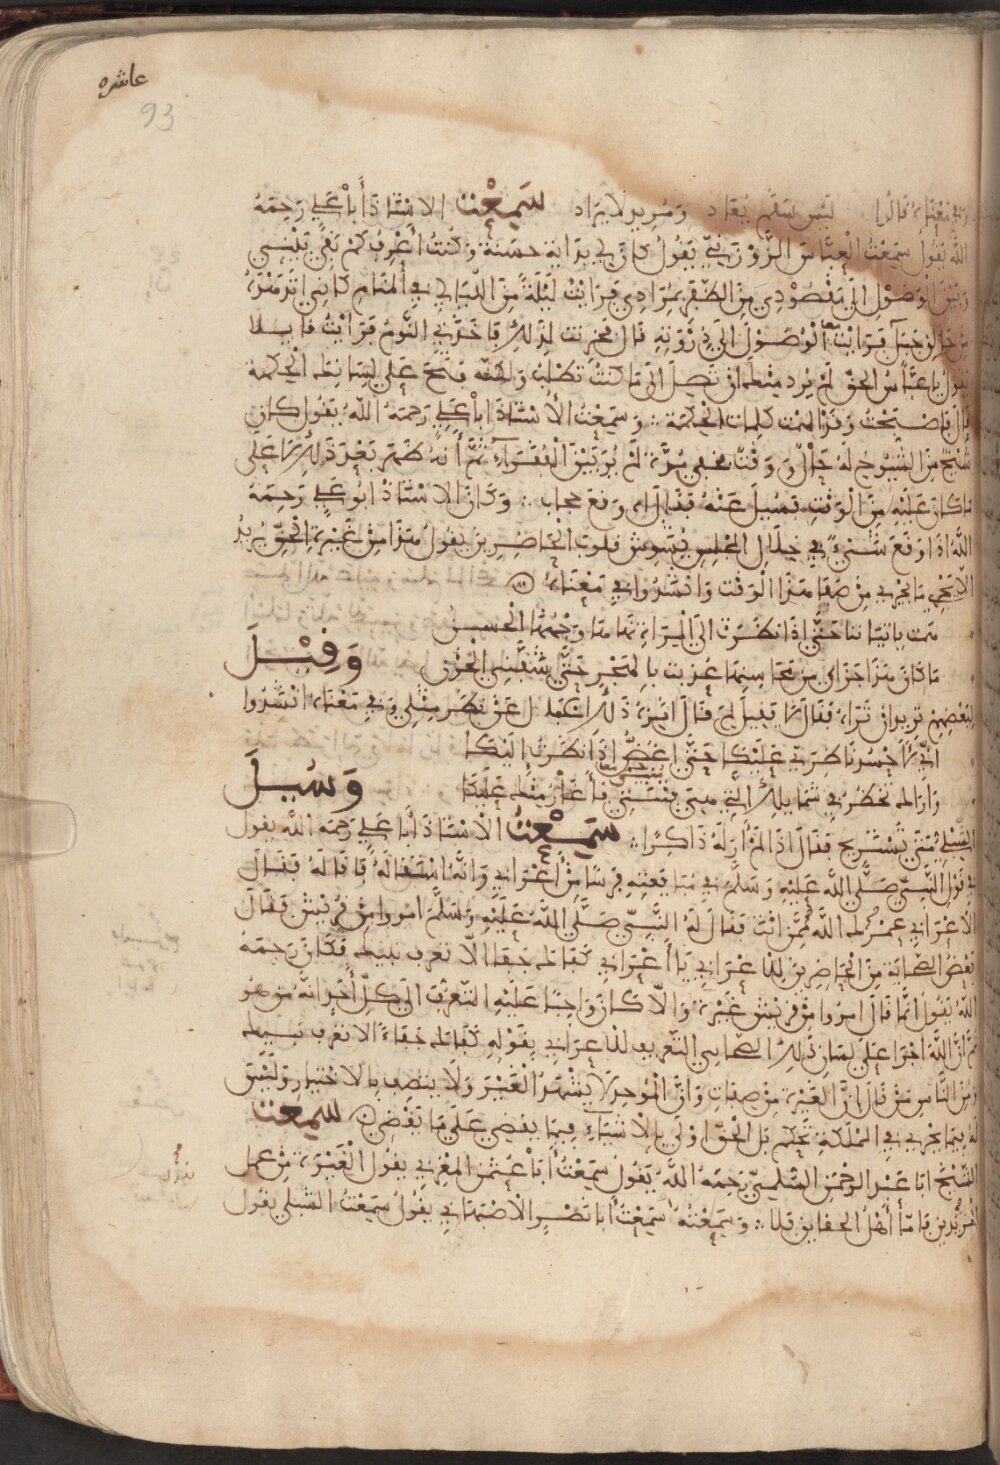 عاشره
93
وفي معناه قالوا ليس سقم يعاد ومريد لا يراد سمعت الاستاذ أبا علي رحمه
الله يقول سمعت العباس الزوزني يقول كان لي بداية حسنة وكنت أعرف كم بقي بيني
وبين الوصول الى مقصودي من الظفر بمرادي فرايت ليلة من الليالي في المنام كاني اتدهده
من حالق جبل فرايت الوصول الى ذروته قال فحزنت لذلك فاخذني النوم فرايت قايلا
يقول يا عباس الحق لم يرد منك ان تصل الى ما كنت تطلب ولكنه فتح على لسانك الحكمة
قال فاصبحت وقد الهمت كلمات الحكمة وسمعت الاستاذ ابا علي رحمه الله يقول كان
شيخ من الشيوخ له حال ووقت فخفي مدة لم ير بين الفقراء ثم انه ظهر بعد ذلك لا على
ما كان عليه من الوقت فسئل عنه فقال اه وقع حجاب وكان الاستاذ ابو علي رحمه
الله اذا وقع شيء في خلال المجلس يشوش قلوب الحاضرين يقول هذا من غيرة الحق يريد
الا يجري ما يجري من صفا هذا الوقت وانشدوا في معناه
همت باتياننا حتى اذا نظرت الى المراة نهاها وجهها الحسن
ما كان هذا جزاي من محاسنها عذبت بالهجر حتى شفني الحزن وقيل
لبعضهم تريد ان تراه فقال لا فقيل لم فقال انزه ذلك الجمال عن نظر مثلي وفي معناه انشدوا
اني لاحسد ناظري عليكا حتى اغض اذا نظرت اليكا
واراك تخطر في شمايلك التي هي فتنتي فأغار منك عليكا وسيل
الشبلي متى تستريح فقال اذا لم أر له ذاكرا سمعت الاستاذ أبا علي رحمه الله يقول
في قول النبي صلى الله عليه وسلم في مبايعته فرسا من أعرابي وانه استقاله فاقاله فقال
الاعرابي عمرك الله ممن انت فقال له النبي صلى الله عليه وسلم امرؤ من قريش فقال
بعض الصحابة من الحاضرين للاعرابي يا أعرابي كفاك جفا الا تعرف نبيك فكان رحمه
الله يقول انما قال امرؤ من قريش غيرة والا كان واجبا عليه التعرف الى كل أحد انه من هو
ثم ان الله اجرا على لسان ذلك الصحابي التعريف للاعرابي بقوله كفاك جفاء الا تعرف نبيك
ومن الناس من قال ان الغيرة من صفات وان الموحد لا يشهد الغير ولا يتصف بالاختيار وليس
له فيما يجري في المملكة تحكم بل الحق اولى بالاشياء فيما يقضي على ما يقضي سمعت
الشيخ ابا عبد الرحمن السلمي رحمه الله يقول سمعت أبا عثمن المغربي يقول الغيرة من عمل
المريدين فاما أهل الحقايق فلا وسمعته سمعت أبا نصر الاصبهاني يقول سمعت الشبلي يقول